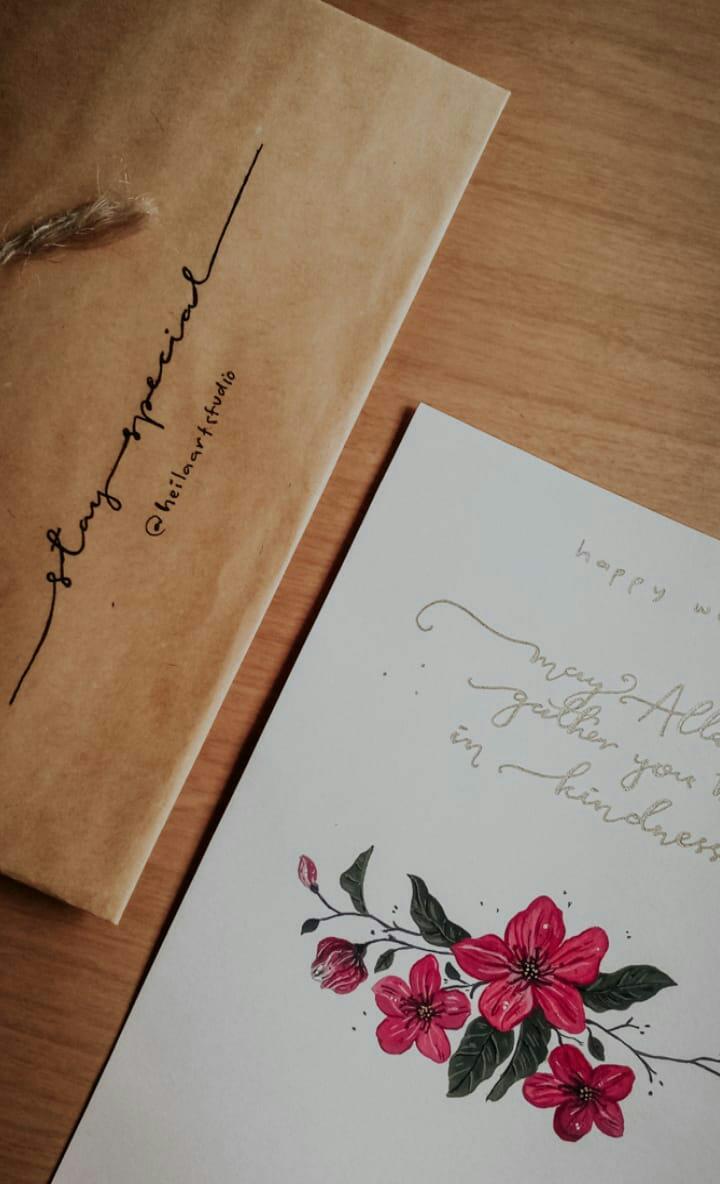 stay special
@heilaartstudio
happy
may
gather you
in kindness